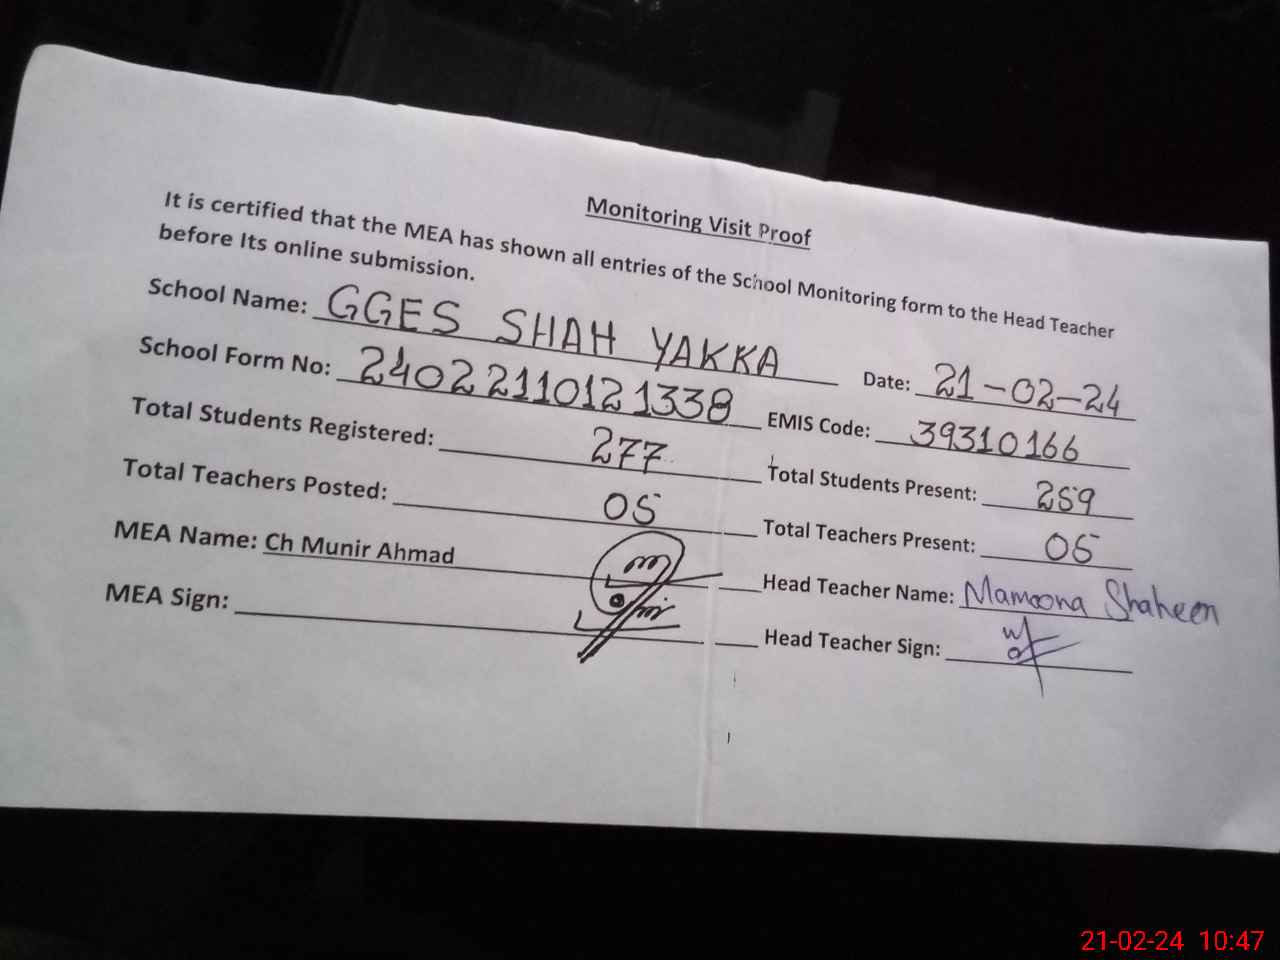 Monitoring Visit Proof
It is certified that the MEA has shown all entries of the School Monitoring form to the Head Teacher
before Its online submission.
School Name: GGES SHAH YAKKA Date: 21-02-24
School Form No: 24022110121338 EMIS Code: 39310166
Total Students Registered: 277 Total Students Present: 259
Total Teachers Posted: 05 Total Teachers Present: 05
MEA Name: Ch Munir Ahmad Head Teacher Name: Mamoona Shaheen
MEA Sign: Head Teacher Sign:
21-02-24 10:47